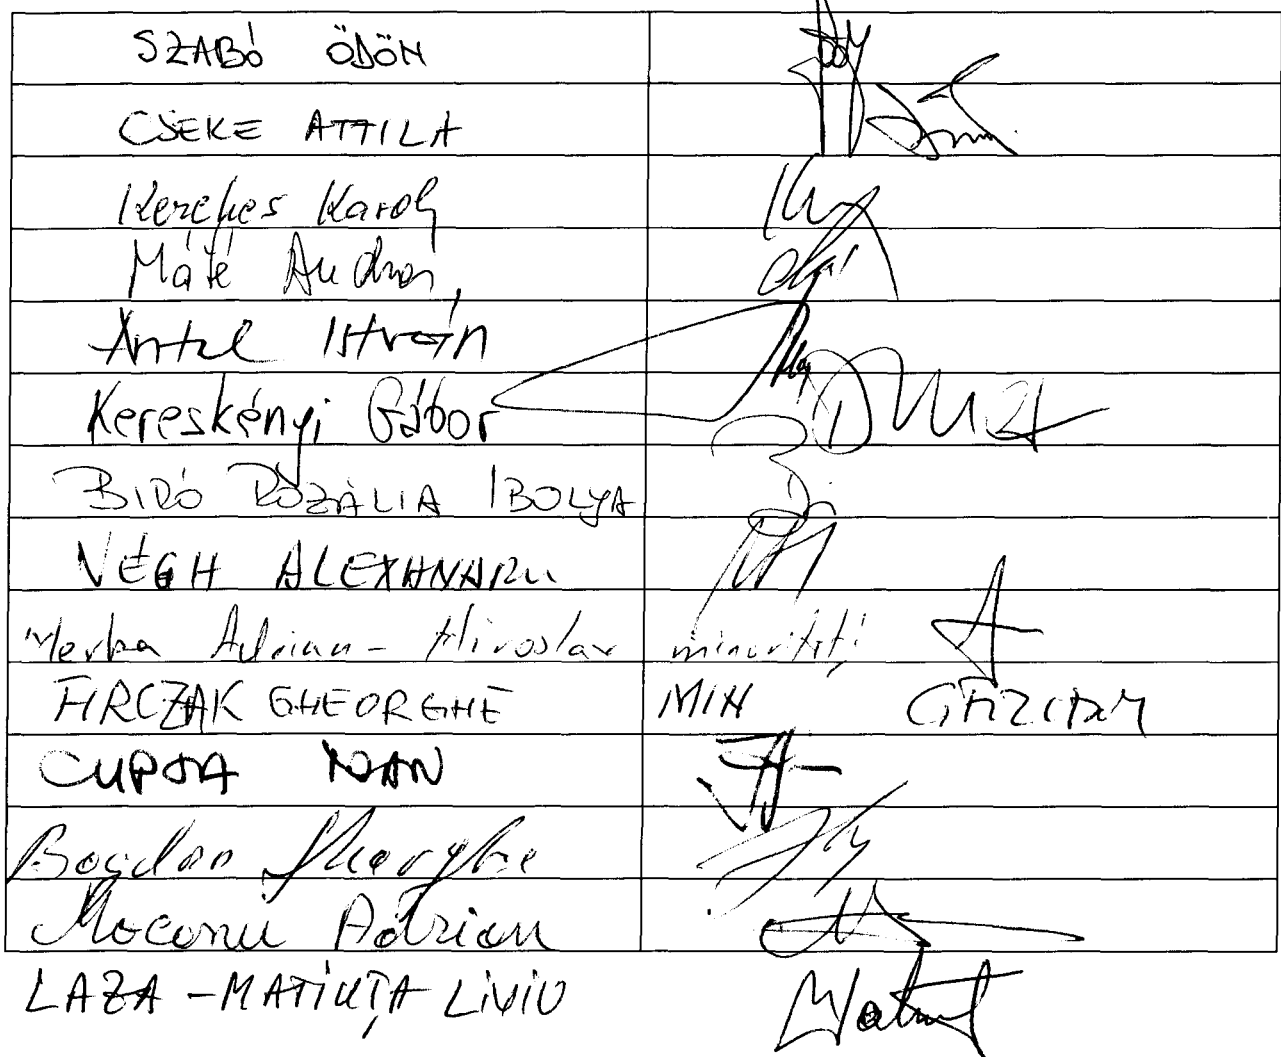 SZABÓ ÖDÖN
CSEKE ATTILA
Kerekes Karoly
Máté András
Antal István
Kereskényi Gábor
BIRÓ ROZÁLIA IBOLYA
VÉGH ALEXANDRU
Merka Adrian-Miroslav minorități
FIRCZAK GHEORGHE MIN
CUPȘA IOAN
Bogdan Gheorghe
Mocanu Adrian
LAZA-MATIUȚA LIVIU